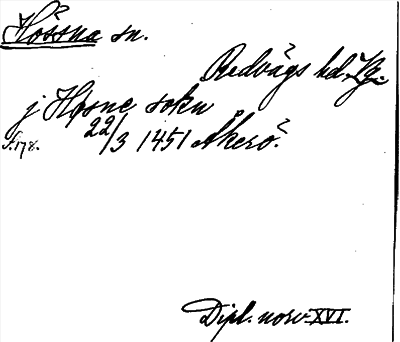 Hössna sn.
Redvägs hd. Vg.
j Høsne sokn
s. 178. 22/3 1451 Åkerö.
Dipl. norv. XVI.